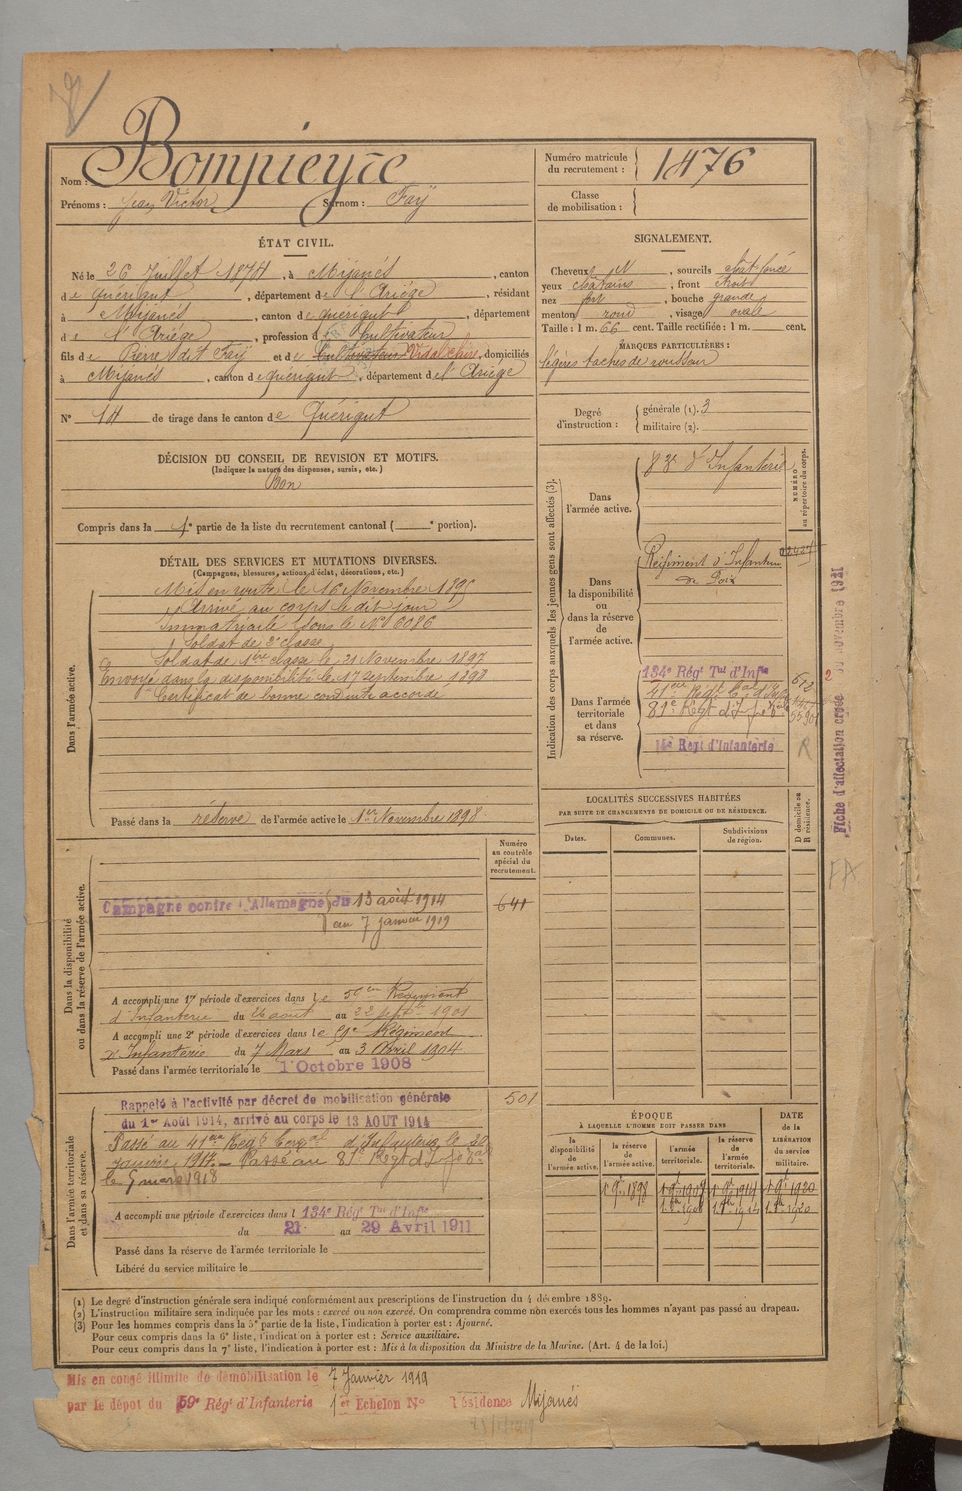 Nom : Bompieyre
Prénoms : Jean Victor Surnom : Faÿ
ÉTAT CIVIL.
Né le 26 Juillet 1874, à Mijanés, canton
de Quérigut, département de l'Ariége, résidant
à Mijanés, canton de Quérigut, département
de l'Ariége, profession de Cultivateur
fils de Pierre dit Faÿ et de Cultivateur Vidal Claire, domiciliés
à Mijanés, canton de Quérigut, département de l'Ariége
N° 14 de tirage dans le canton de Quérigut
DÉCISION DU CONSEIL DE REVISION ET MOTIFS.
(Indiquer la nature des dispenses, sursis, etc.)
Bon
Compris dans la 1e partie de la liste du recrutement cantonal ( e portion).
DÉTAIL DES SERVICES ET MUTATIONS DIVERSES.
(Campagnes, blessures, actions d'éclat, décorations, etc.)
Dans l'armée active.
Mis en route le 16 Novembre 1895
Arrivé au corps le dit jour
Immatriculé sous le N° 6086
Soldat de 2e classe
Soldat de 1ère classe le 21 Novembre 1897
Envoyé dans la disponibilité le 17 septembre 1898
Certificat de bonne conduite accordé
Passé dans la réserve de l'armée active le 1er Novembre 1898
Numéro au contrôle spécial du recrutement.
Dans la disponibilité ou dans la réserve de l'armée active.
Campagne contre l'Allemagne du 13 août 1914
au 7 janvier 1919
641
A accompli une 1re période d'exercices dans le 59eme Régiment
d'Infanterie du 26 août au 22 sept 1901
A accompli une 2e période d'exercices dans le 59e Régiment
d'Infanterie du 7 Mars au 3 Avril 1904
Passé dans l'armée territoriale le 1 Octobre 1908
Dans l'armée territoriale et dans sa réserve.
501
Rappelé à l'activité par décret de mobilisation générale
du 1er Août 1914, arrivé au corps le 13 AOUT 1914
Passé au 41eme Régt Territal d'Infanterie le 20
janvier 1917. — Passé au 81e Régt d'Inf
le 5 mars 1918
A accompli une période d'exercices dans l 134e Régt Tal d'Infie
du 21 au 29 Avril 1911
Passé dans la réserve de l'armée territoriale le
Libéré du service militaire le
Numéro matricule du recrutement : 1476
Classe de mobilisation :
SIGNALEMENT.
Cheveux N, sourcils chat. foncé
yeux chatains, front étroit
nez fort, bouche grande
menton rond, visage ovale
Taille : 1 m. 66 cent. Taille rectifiée : 1 m. cent.
MARQUES PARTICULIÈRES :
légères taches de rousseur
Degré d'instruction : générale (1). 3
militaire (2).
Indication des corps auxquels les jeunes gens sont affectés (3).
NUMÉRO au répertoire du corps.
Dans l'armée active.
83e d'Infanterie
Dans la disponibilité ou dans la réserve de l'armée active.
Régiment d'Infanterie
de Foix
Dans l'armée territoriale et dans sa réserve.
134e Régt Tal d'Infie
41eme Régt Tal d'Inf
81e Régt d'Inf
14e Regt d'Infanterie
R
LOCALITÉS SUCCESSIVES HABITÉES
PAR SUITE DE CHANGEMENTS DE DOMICILE OU DE RÉSIDENCE.
D domicile ou R résidence.
Dates. Communes. Subdivisions de région.
ÉPOQUE
À LAQUELLE L'HOMME DOIT PASSER DANS
DATE de la LIBÉRATION du service militaire.
la disponibilité de l'armée active. la réserve de l'armée active. l'armée territoriale. la réserve de l'armée territoriale.
1 9bre 1898 1 9bre 1908 1 9bre 1914 1 9bre 1920
1 8bre 1908 1 8bre 1914 1 8bre 1920
(1) Le degré d'instruction générale sera indiqué conformément aux prescriptions de l'instruction du 4 décembre 1889.
(2) L'instruction militaire sera indiquée par les mots : exercé ou non exercé. On comprendra comme non exercés tous les hommes n'ayant pas passé au drapeau.
(3) Pour les hommes compris dans la 5e partie de la liste, l'indication à porter est : Ajourné.
Pour ceux compris dans la 6e liste, l'indication à porter est : Service auxiliaire.
Pour ceux compris dans la 7e liste, l'indication à porter est : Mis à la disposition du Ministre de la Marine. (Art. 4 de la loi.)
Mis en congé illimité de démobilisation le 7 Janvier 1919
par le dépôt du 59e Régt d'Infanterie 1er Echelon N° résidence Mijanés
Fiche d'affectation créée novembre 1921
FA